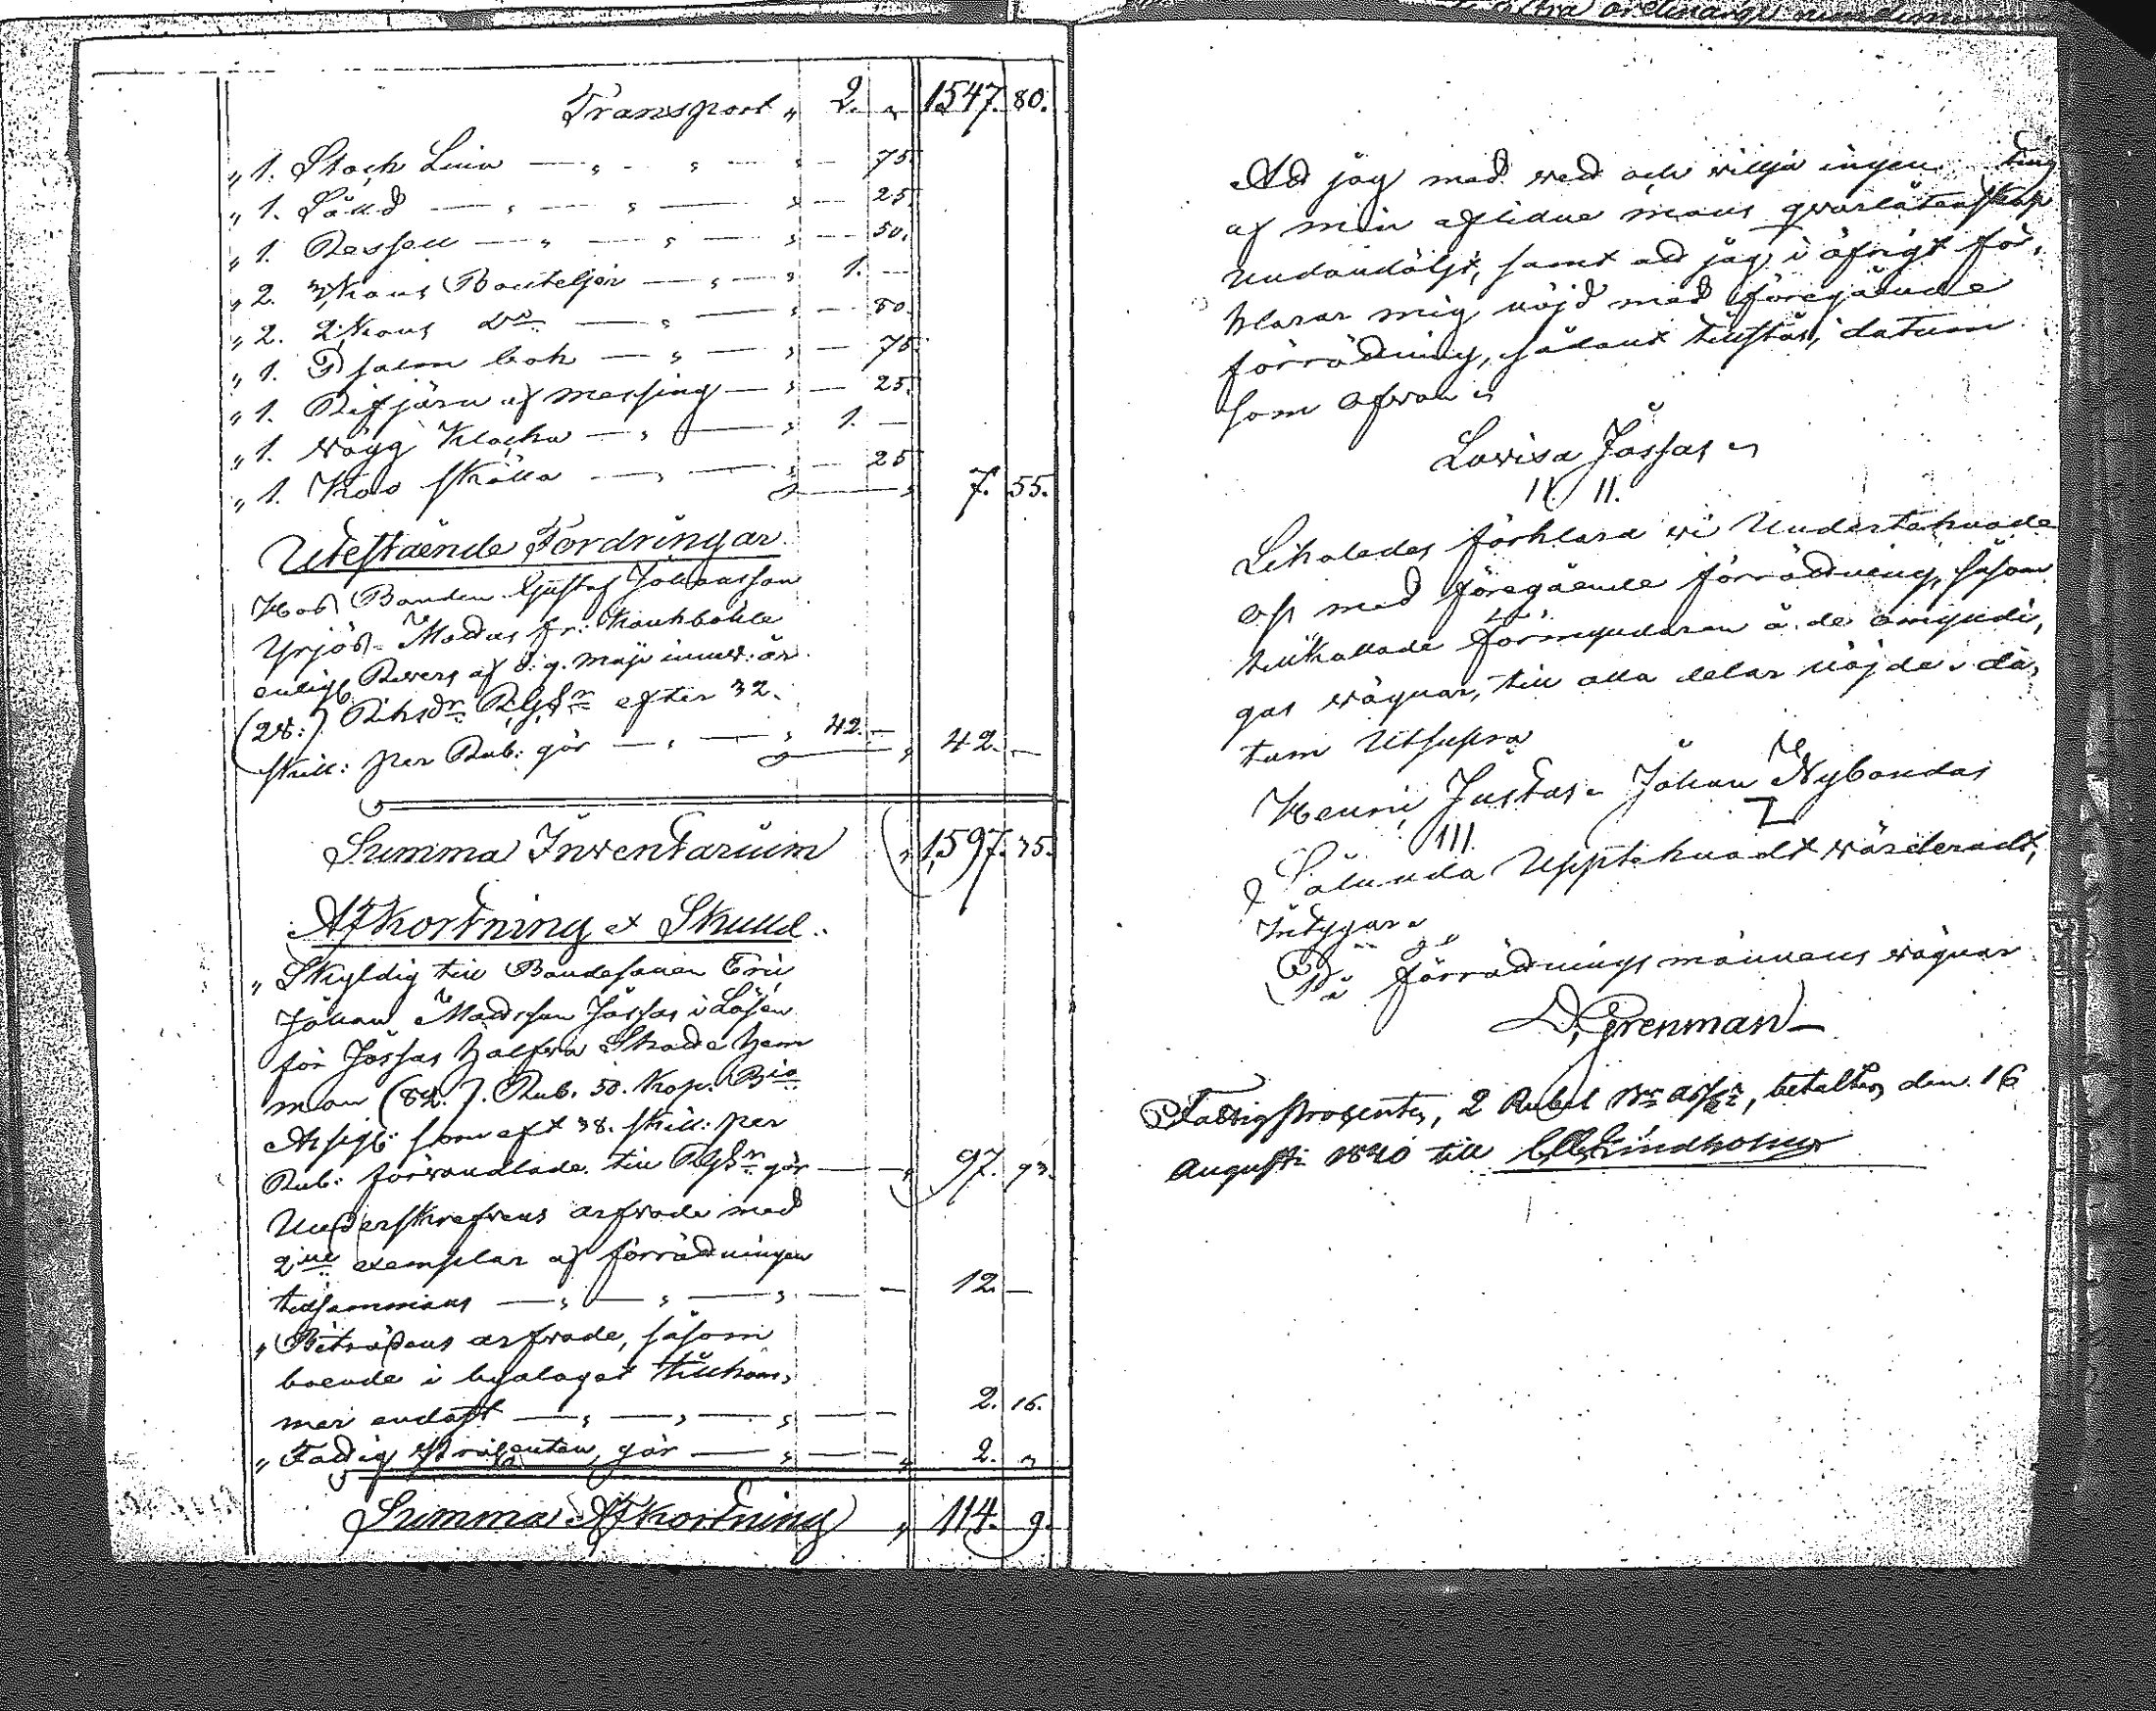 Transport „ 2. „ 1547. 80.
„ 1. Stock Lina — „ — 75.
„ 1. Såll d — „ — 25.
„ 1. — „ — 50.
„ 2. 3 Kans Bouteljer — „ 1. —
„ 2. 2 Kans do — „ — 80.
„ 1. Psalm bok — „ — 75.
„ 1. Rifjärn af messing — „ — 25.
„ 1. Wägg Klocka — „ 1. —
„ 1. Koo skälla — „ — 25 7. 55.
Utestående Fordringar.
Hos Bonden Gustaf Johansson
Yrjös Mattas fr:
enligt Revers af d. 9. Maji innev: år
(28:) Riksdr RGSr efter 32.
skill: per Rub: gör — „ 42. — „ 42. —
Summa Inventarium „ 1,597. 35.
Afkortning & Skuld.
„ Skyldig till Bondesonen Eric
Johan Mattsson Jossas i Lösen
för Jossas halfva Skatte hem
man (82.) Rub. 50. Kop. Bco
Assigt: som eft 38. skill: per
Rub: förvandlade till RGSr gör — „ 97. 93.
Underskrefvens arfvode med
2ne exemplar af förrättningen
tillsammans — „ — 12. —
„ Biträdens arfvode, såsom
boende i byalaget tillkom,
mer endast — „ — 2. 16.
„ Fattig Procenten, gör — „ 2. „
Summa Afkortning „ 114. 9.
Att jag med vett och vilja ingen ting
af min aflidne mans qvarlåtenskap
undandöljt, samt att jag i öfrigt för,
klarar mig nöjd med föregående
förrättning, sådant tillstår, datum
som ofvan
Lovisa Jossas
II II.
Likaledes förklara vi Undertecknade
oss med föregående förrättning, såsom
tillkallade förmyndaren å de omyndi,
gas vägnar, till alla delar nöjde. da,
tum Utsupra
Henric Justas Johan Nybondas
III.
Sålunda Upptecknadt värderadt,
Intygar
På förrättnings männens vägnar
D. Grenman
Fattigprocenten, 2 Rubel Br Assr, betalter den 16
Augusti 1840 till Lindholm